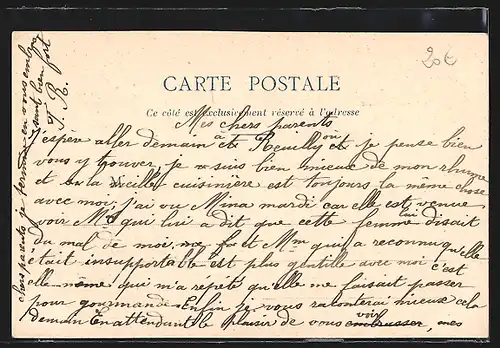 20€
CARTE POSTALE
Ce côté est exclusivement réservé à l'adresse
Mes chers parents
j'espère aller demain à Reuilly où je pense bien
vous y trouver, je suis bien mieux de mon rhume
et la vieille cuisinière est toujours la même chose
avec moi, j'ai vu Mina mardi car elle est venue
voir Me qui lui a dit que cette femme lui disait
du mal de moi, et Mme qui a reconnu qu'elle
était insupportable est plus gentille avec moi c'est
elle-même qui m'a répété qu'elle me faisait passer
pour gourmande Enfin je vous raconterai mieux cela
demain En attendant le plaisir de vous voir embrasser, mes
chers parents je termine en vous embra
ssant bien fort
J. R.